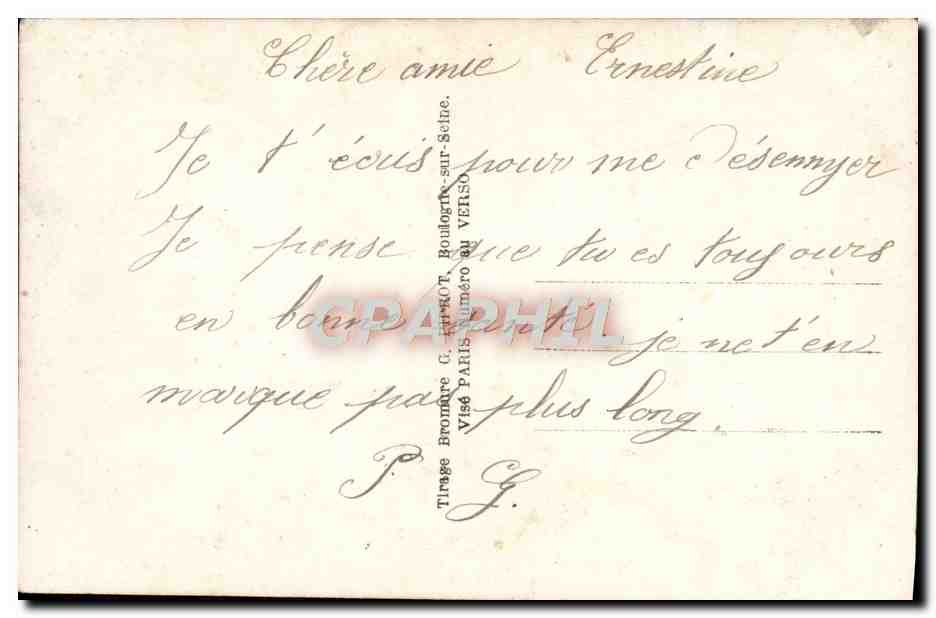 Chère amie Ernestine
Je t'écris pour me désennyer
Je pense que tu es toujours
en bonne santé je ne t'en
marque pas plus long.
P. G.
Tirage Bromure G. PIPROT. Boulogne-sur-Seine.
Visé PARIS Numéro au VERSO
CPAPHIL